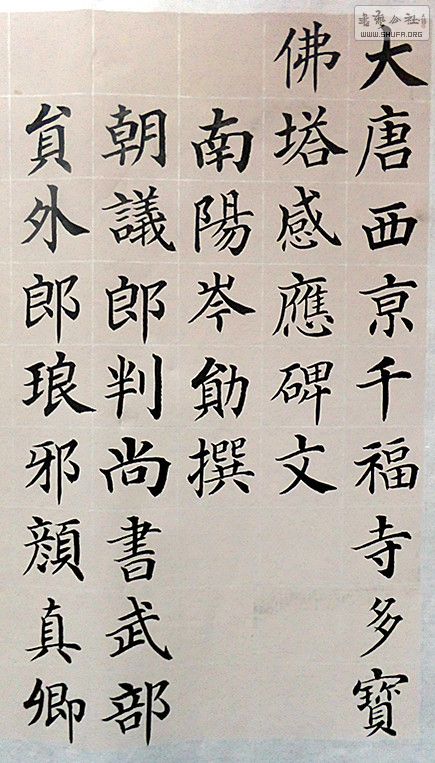 大唐西亰千福寺多寶
佛塔感應碑文
南陽岑勛撰
朝議郎判尚書武部
員外郎琅邪顏真卿
書藝公社
WWW.SHUFA.ORG